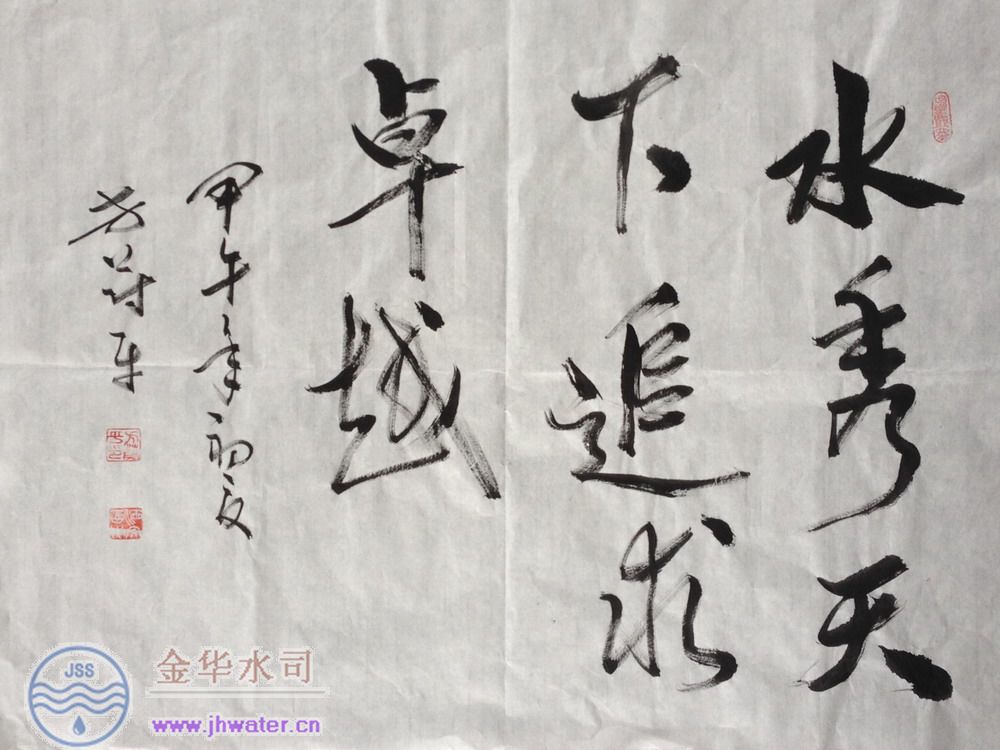 水秀天
下追求
卓越
甲午年初夏
JSS
金华水司
www.jhwater.cn